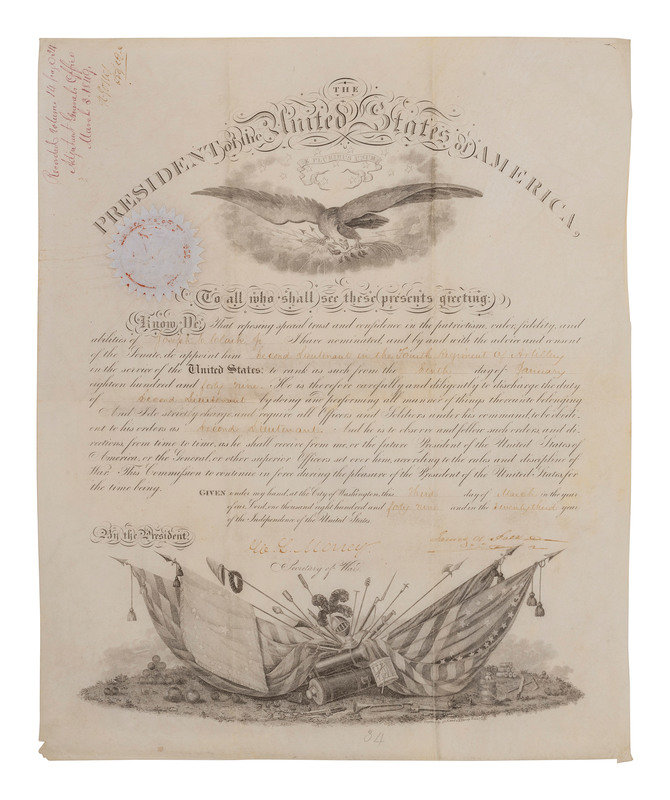 Recorded, Volume 12, page 24
Adjutant General's Office
March 3. 1849.
THE
PRESIDENT of the United States of AMERICA,
E PLURIBUS UNUM
To all who shall see these presents greeting:
Know Ye, That reposing special trust and confidence in the patriotism, valor, fidelity, and
abilities of Joseph C. Clark Jr. I have nominated, and by and with the advice and consent
of the Senate, do appoint him Second Lieutenant in the Fourth Regiment of Artillery
in the service of the United States: to rank as such from the day of January
eighteen hundred and forty nine. He is therefore carefully and diligently to discharge the duty
of Second Lieutenant by doing and performing all manner of things thereunto belonging.
And I do strictly charge, and require all Officers and Soldiers under his command, to be obedi-
ent to his orders as Second Lieutenant. And he is to observe and follow such orders, and di-
rections, from time to time, as he shall receive from me, or the future President of the United States of
America, or the General, or other superior Officers set over him, according to the rules and discipline of
War. This Commission to continue in force during the pleasure of the President of the United States, for
the time being.
GIVEN under my hand, at the City of Washington, this third day of March in the year
of our Lord, one thousand eight hundred and forty nine, and in the Seventy third year
of the Independence of the United States.
By the President,
Secretary of War.
34